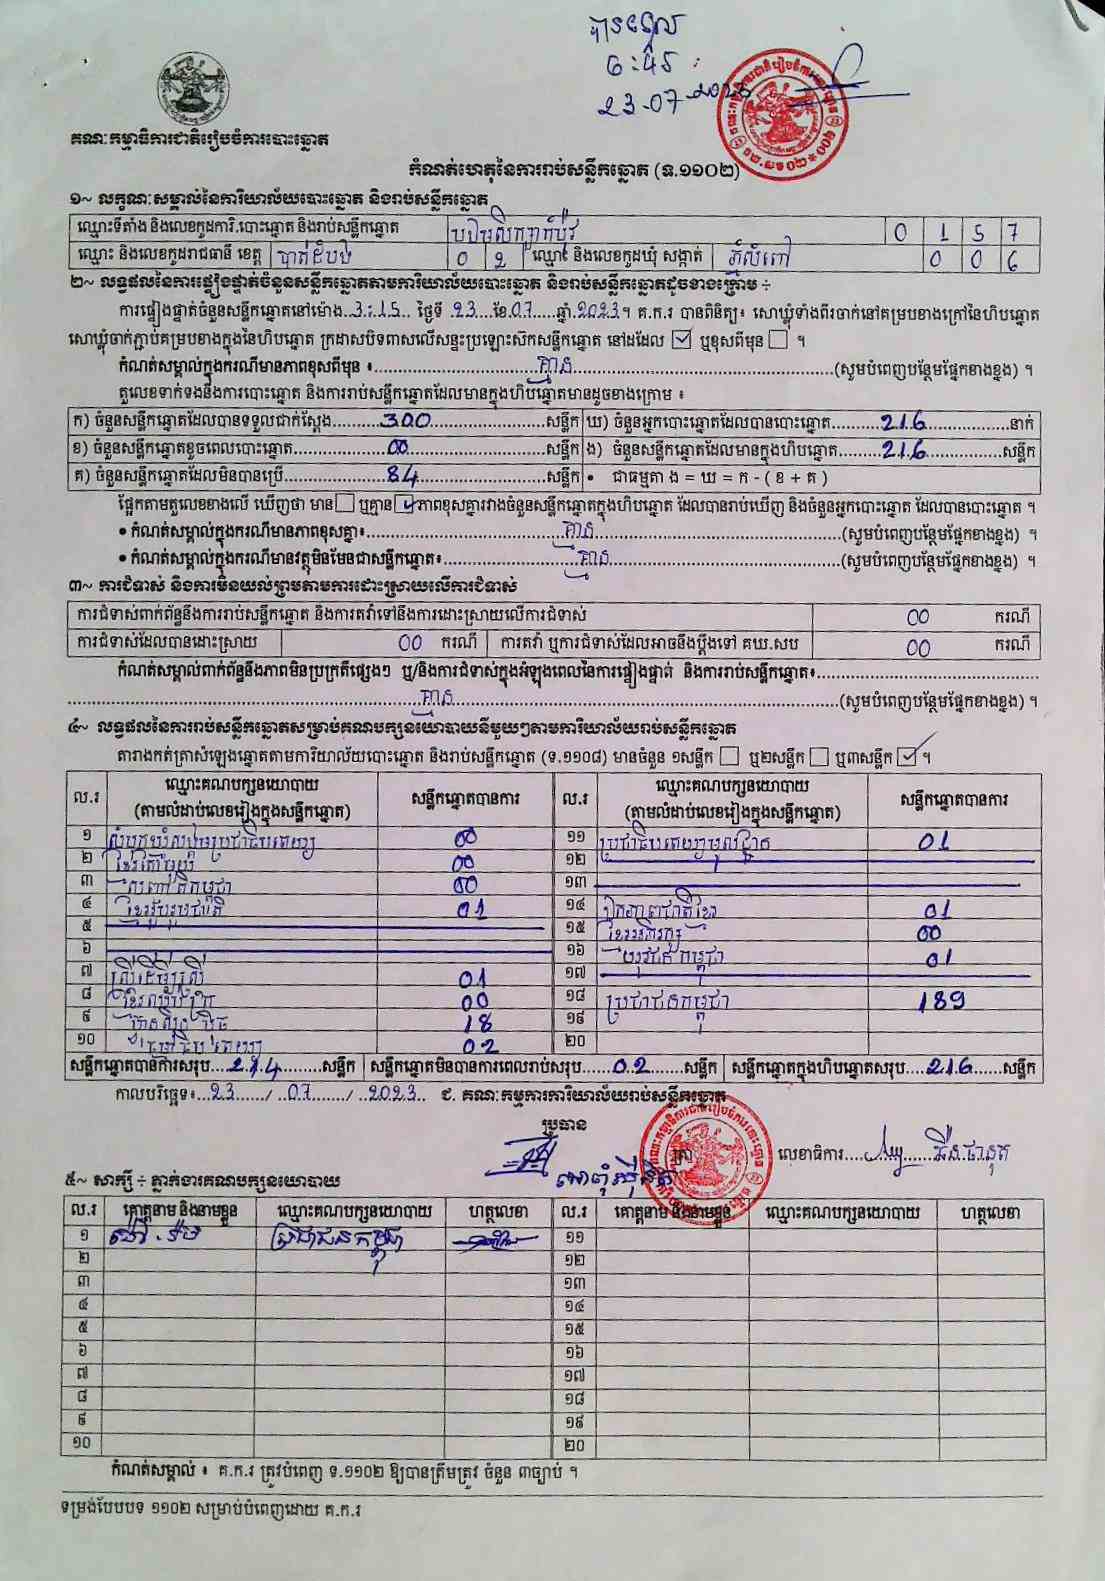 បានទទួល
៦:
23-07-2023
គណៈកម្មាធិការជាតិរៀបចំការបោះឆ្នោត
កំណត់ហេតុនៃការរាប់សន្លឹកឆ្នោត (ទ.១១០២)
១~ លក្ខណៈសម្គាល់នៃការិយាល័យបោះឆ្នោត និងរាប់សន្លឹកឆ្នោត
ឈ្មោះទីតាំង និងលេខកូដការិ.បោះឆ្នោត និងរាប់សន្លឹកឆ្នោត 0 1 5 7
ឈ្មោះ និងលេខកូដរាជធានី ខេត្ត បាត់ដំបង 0 2 ឈ្មោះ និងលេខកូដឃុំ សង្កាត់ 0 0 6
២~ លទ្ធផលនៃការផ្ទៀងផ្ទាត់ចំនួនសន្លឹកឆ្នោតតាមការិយាល័យបោះឆ្នោត និងរាប់សន្លឹកឆ្នោតដូចខាងក្រោម ÷
ការផ្ទៀងផ្ទាត់ចំនួនសន្លឹកឆ្នោតនៅម៉ោង..3:15.. ថ្ងៃទី .23...ខែ.07.....ឆ្នាំ.2023។ គ.ក.រ បានពិនិត្យ៖ សោឃ្លុំទាំងពីរចាក់នៅគម្របខាងក្រៅនៃហិបឆ្នោត
សោឃ្លុំចាក់ភ្ជាប់គម្របខាងក្នុងនៃហិបឆ្នោត ក្រដាសបិទពាសលើសន្ទះប្រឡោះស៊កសន្លឹកឆ្នោត នៅដដែល ☑ ឬខុសពីមុន ☐ ។
កំណត់សម្គាល់ក្នុងករណីមានភាពខុសពីមុន ៖..........គ្មាន..........(សូមបំពេញបន្ថែមផ្នែកខាងខ្នង) ។
តួលេខទាក់ទងនឹងការបោះឆ្នោត និងការរាប់សន្លឹកឆ្នោតដែលមានក្នុងហិបឆ្នោតមានដូចខាងក្រោម ៖
ក) ចំនួនសន្លឹកឆ្នោតដែលបានទទួលជាក់ស្តែង........300........សន្លឹក ឃ) ចំនួនអ្នកបោះឆ្នោតដែលបានបោះឆ្នោត........216........នាក់
ខ) ចំនួនសន្លឹកឆ្នោតខូចពេលបោះឆ្នោត........00........សន្លឹក ង) ចំនួនសន្លឹកឆ្នោតដែលមានក្នុងហិបឆ្នោត........216........សន្លឹក
គ) ចំនួនសន្លឹកឆ្នោតដែលមិនបានប្រើ........84........សន្លឹក • ជាធម្មតា ង = ឃ = ក - ( ខ + គ )
ផ្អែកតាមតួលេខខាងលើ ឃើញថា មាន ☐ ឬគ្មាន ☑ ភាពខុសគ្នារវាងចំនួនសន្លឹកឆ្នោតក្នុងហិបឆ្នោត ដែលបានរាប់ឃើញ និងចំនួនអ្នកបោះឆ្នោត ដែលបានបោះឆ្នោត ។
• កំណត់សម្គាល់ក្នុងករណីមានភាពខុសគ្នា៖..........គ្មាន..........(សូមបំពេញបន្ថែមផ្នែកខាងខ្នង) ។
• កំណត់សម្គាល់ក្នុងករណីមានវត្ថុមិនមែនជាសន្លឹកឆ្នោត៖..........គ្មាន..........(សូមបំពេញបន្ថែមផ្នែកខាងខ្នង) ។
៣~ ការជំទាស់ និងការមិនយល់ព្រមតាមការដោះស្រាយលើការជំទាស់
ការជំទាស់ពាក់ព័ន្ធនឹងការរាប់សន្លឹកឆ្នោត និងការតវ៉ាទៅនឹងការដោះស្រាយលើការជំទាស់ 00 ករណី
ការជំទាស់ដែលបានដោះស្រាយ 00 ករណី ការតវ៉ា ឬការជំទាស់ដែលអាចនឹងប្តឹងទៅ គឃ.សប 00 ករណី
កំណត់សម្គាល់ពាក់ព័ន្ធនឹងភាពមិនប្រក្រតីផ្សេងៗ ឬ/និងការជំទាស់ក្នុងអំឡុងពេលនៃការផ្ទៀងផ្ទាត់ និងការរាប់សន្លឹកឆ្នោត៖..........
..........គ្មាន..........(សូមបំពេញបន្ថែមផ្នែកខាងខ្នង) ។
៤~ លទ្ធផលនៃការរាប់សន្លឹកឆ្នោតសម្រាប់គណបក្សនយោបាយនីមួយៗតាមការិយាល័យរាប់សន្លឹកឆ្នោត
តារាងកត់ត្រាសំឡេងឆ្នោតតាមការិយាល័យបោះឆ្នោត និងរាប់សន្លឹកឆ្នោត (ទ.១១០៨) មានចំនួន ១សន្លឹក ☐ ឬ២សន្លឹក ☐ ឬ៣សន្លឹក ☑ ។
ល.រ ឈ្មោះគណបក្សនយោបាយ (តាមលំដាប់លេខរៀងក្នុងសន្លឹកឆ្នោត) សន្លឹកឆ្នោតបានការ ល.រ ឈ្មោះគណបក្សនយោបាយ (តាមលំដាប់លេខរៀងក្នុងសន្លឹកឆ្នោត) សន្លឹកឆ្នោតបានការ
១ 00 ១១ ប្រជាធិបតេយ្យមូលដ្ឋាន 01
២ 00 ១២
៣ 00 ១៣
៤ ខ្មែររួបរួមជាតិ 01 ១៤ ឯកភាពជាតិខ្មែរ 01
៥ ១៥ 00
៦ ១៦ 01
៧ 01 ១៧
៨ 00 ១៨ ប្រជាជនកម្ពុជា 189
៩ 18 ១៩
១០ 02 ២០
សន្លឹកឆ្នោតបានការសរុប...214........សន្លឹក សន្លឹកឆ្នោតមិនបានការពេលរាប់សរុប......02.......សន្លឹក សន្លឹកឆ្នោតក្នុងហិបឆ្នោតសរុប....216......សន្លឹក
កាលបរិច្ឆេទ៖...23....../ ..07......./ ..2023.. ជ. គណៈកម្មការការិយាល័យរាប់សន្លឹកឆ្នោត
ប្រធាន
លេខាធិការ
៥~ សាក្សី ÷ ភ្នាក់ងារគណបក្សនយោបាយ
ល.រ គោត្តនាម និងនាមខ្លួន ឈ្មោះគណបក្សនយោបាយ ហត្ថលេខា ល.រ គោត្តនាម និងនាមខ្លួន ឈ្មោះគណបក្សនយោបាយ ហត្ថលេខា
១ ប្រជាជនកម្ពុជា ១១
២ ១២
៣ ១៣
៤ ១៤
៥ ១៥
៦ ១៦
៧ ១៧
៨ ១៨
៩ ១៩
១០ ២០
កំណត់សម្គាល់ ៖ គ.ក.រ ត្រូវបំពេញ ទ.១១០២ ឱ្យបានត្រឹមត្រូវ ចំនួន ៣ច្បាប់ ។
ទម្រង់បែបបទ ១១០២ សម្រាប់បំពេញដោយ គ.ក.រ